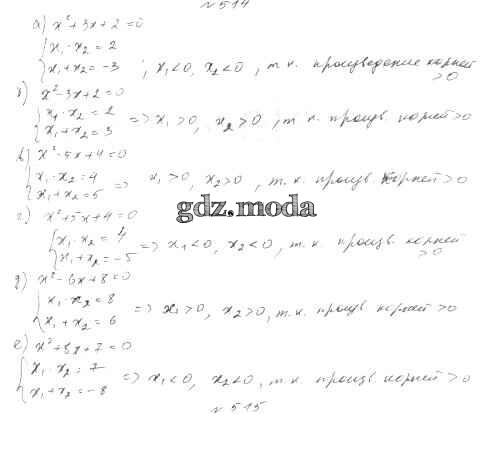 № 514
а) x²+3x+2=0
{ x₁·x₂=2
{ x₁+x₂=-3 ; x₁<0, x₂<0, т.к. произведение корней >0
б) x²-3x+2=0
{ x₁·x₂=2
{ x₁+x₂=3 => x₁>0, x₂>0, т.к. произв. корней >0
в) x²-5x+4=0
{ x₁·x₂=4
{ x₁+x₂=5 => x₁>0, x₂>0, т.к. произв. корней >0
gdz.moda
г) x²+5x+4=0
{ x₁·x₂=4
{ x₁+x₂=-5 => x₁<0, x₂<0, т.к. произв. корней >0
д) x²-6x+8=0
{ x₁·x₂=8
{ x₁+x₂=6 => x₁>0, x₂>0, т.к. произв. корней >0
е) x²+8x+7=0
{ x₁·x₂=7
{ x₁+x₂=-8 => x₁<0, x₂<0, т.к. произв. корней >0
№ 515